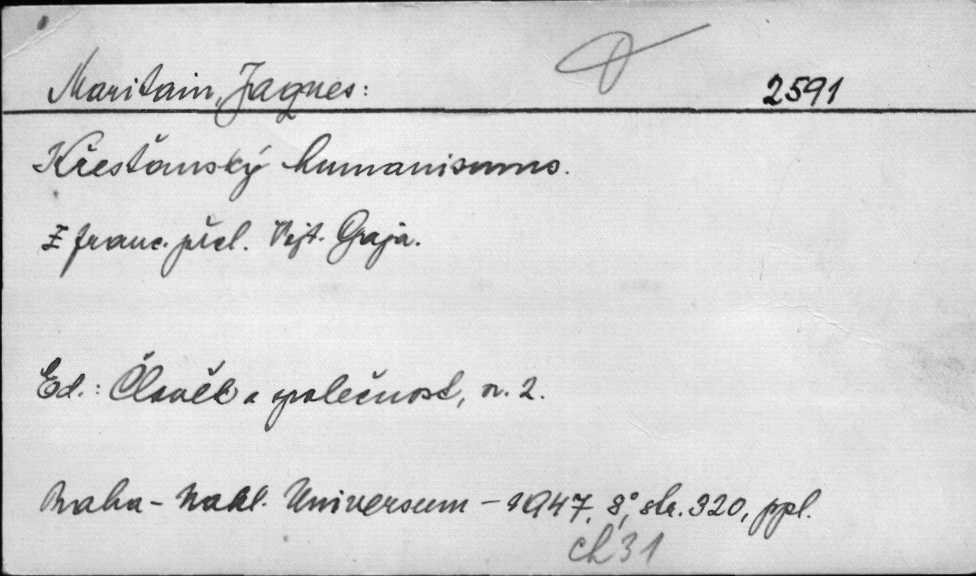 Maritain, Jaques: 2591
Křesťanský humanismus.
Z franc. přel. Vojt. Gaja.
Ed.: Člověk a společnost, sv. 2.
Praha - Nakl. Universum - 1947, 8°, str. 320, ppl.
ch 31